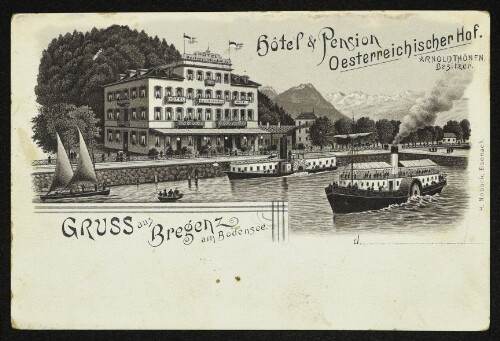 Hôtel & Pension
Oesterreichischer Hof.
ARNOLD THÖNEN
Besitzer.
HOTEL
GRUSS aus
Bregenz
am Bodensee.
d.
H. Nisback, Eisenach.